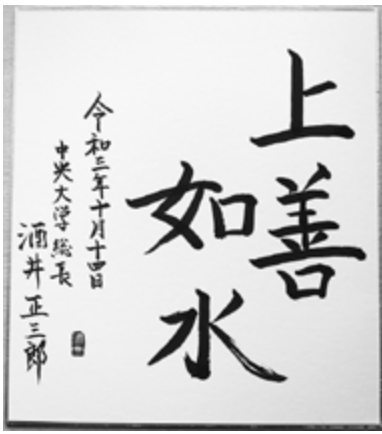 上善
如水
令和三年十月十四日
中央大学総長
酒井正三郎